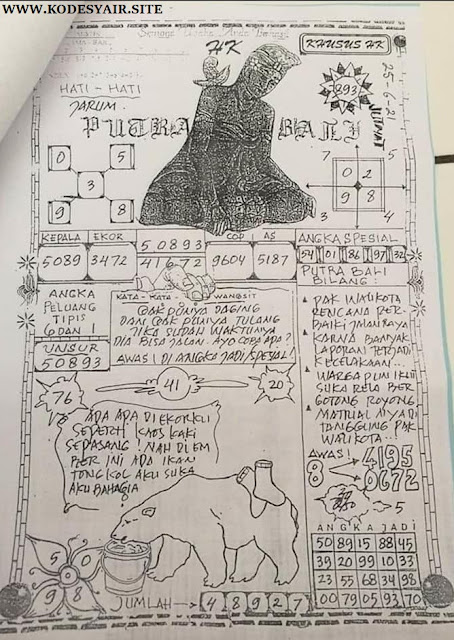 WWW.KODESYAIR.SITE
Semoga Usaha Anda Berhasil
HK
KHUSUS HK
25-6-21
JUM'AT
893
HATI-HATI
JARUM
PUTRA BALI
0 5
3
9 8
7 5
0 2
9 8
3 4
KEPALA EKOR
5089 3472
50893
41672
COP AS
9604 5187
ANGKA SPESIAL
54 01 86 97 32
PUTRA BALI
BILANG:
PAK WALIKOTA
RENCANA PER-
BAIKI JALAN RAYA
KARNA BANYAK
LAPORAN TERJADI
KECELAKAAN...
WARGA PUN IKUT
SUKA RELA BER
GOTONG ROYONG.
MATRIALNYA DI
TANGGUNG PAK
WALIKOTA..!
ANGKA
PELUANG
TIPIS
6 DAN 1
UNSUR
50893
KATA-KATA WANGSIT
GAK PUNYA DAGING
DAN GAK PUNYA TULANG
JIKA SUDAH WAKTUNYA
DIA BISA JALAN. AYO COBA APA?
AWAS! DI ANGKA JADI/SPESIAL!
76
41
20
ADA ADA DI EKORKU
SEPERTI KAOS KAKI
SEPASANG! NAH DI EM
BER INI ADA IKAN
TONGKOL AKU SUKA
AKU BAHAGIA
AWAS!
8
4195
0672
5
ANGKA JADI
50 89 15 88 45
39 20 99 10 33
23 55 68 34 98
00 79 05 93 70
5 0
9 8
JUMLAH → 4 8 9 2 7